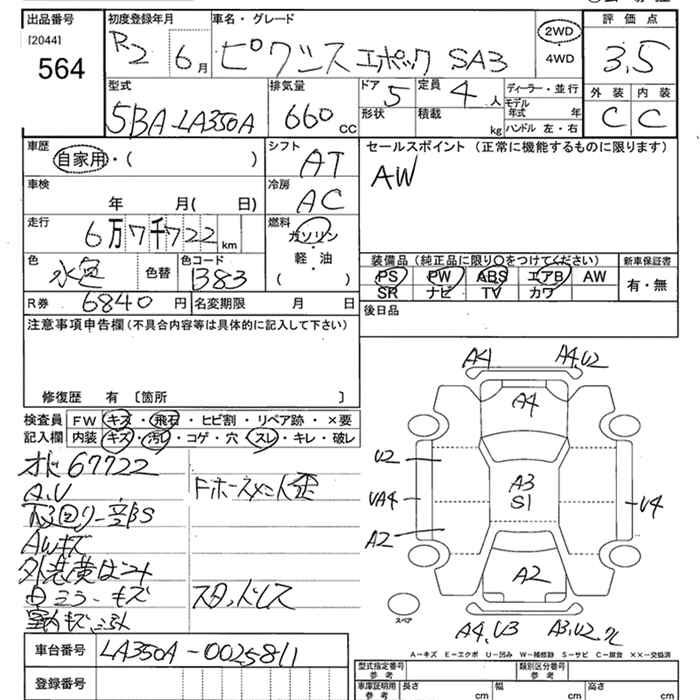 出品番号 初度登録年月 車名・グレード 評価点
[2044] R2 6月 2WD
564 ピクシス エポック SA3 4WD 3.5
型式 排気量 ドア 5 定員 4人 ディーラー・並行 外装 内装
5BA-LA350A 660cc 形状 積載 kg モデル年式 年 C C
ハンドル 左・右
車歴 シフト セールスポイント (正常に機能するものに限ります)
自家用・( ) AT AW
車検 冷房
年 月( 日) AC
走行 燃料
6万7千722km ガソリン
色 色替 色コード 軽・油 装備品 (純正品に限り○をつけてください) 新車保証書
水色 B83 ( ) PS PW ABS エアB AW 有・無
SR ナビ TV カワ
R券 6840円 名変期限 月 日 後日品
注意事項申告欄 (不具合内容等は具体的に記入して下さい)
修復歴 有 〔箇所 〕
検査員 FW キズ・飛石・ヒビ割・リペア跡・×要
記入欄 内装 キズ・汚レ・コゲ・穴・スレ・キレ・破レ
A4 A4,U2
A4
U2
A3
S1
UA4 U4
A2
A2
スペア
A4,U3 A3,U2
67722
A,U
下回り一部S
AWキズ
ミラーキズ
スタッドレス
A-キズ E-エクボ U-凹み W-補修跡 S-サビ C-腐食 ××-交換済
車台番号 LA350A-0025811
登録番号
型式指定番号 参考 類別区分番号 参考
車庫証明用 参考 長さ cm 幅 cm 高さ cm